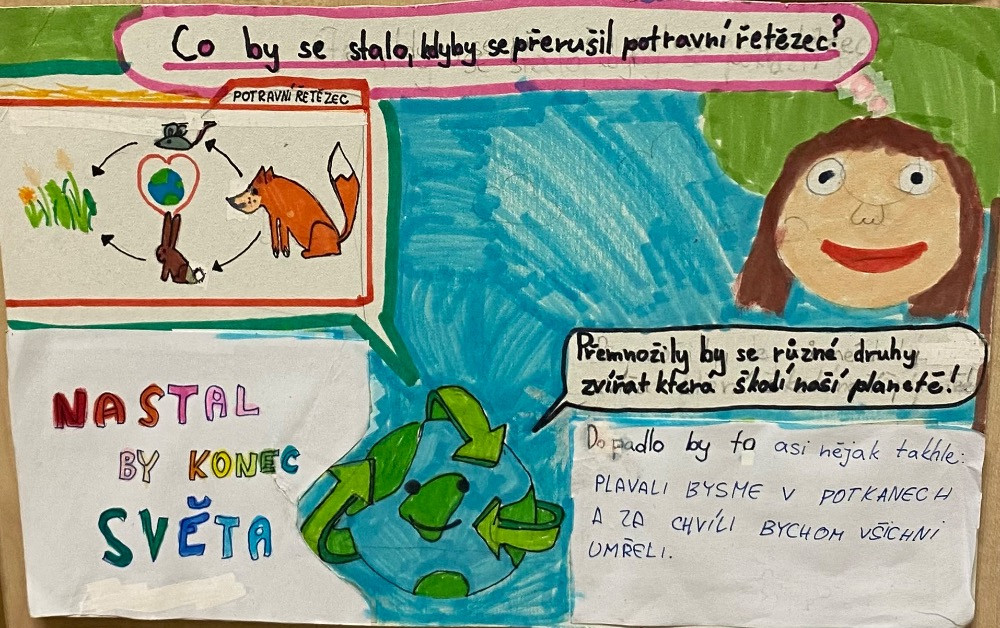 Co by se stalo, kdyby se přerušil potravní řetězec?
POTRAVNÍ ŘETĚZEC
Přemnožily by se různé druhy
zvířat která škodí naší planetě!
NASTAL
BY KONEC
SVĚTA
Dopadlo by to asi nějak takhle:
PLAVALI BYSME V POTKANECH
A ZA CHVÍLI BYCHOM VŠICHNI
UMŘELI.